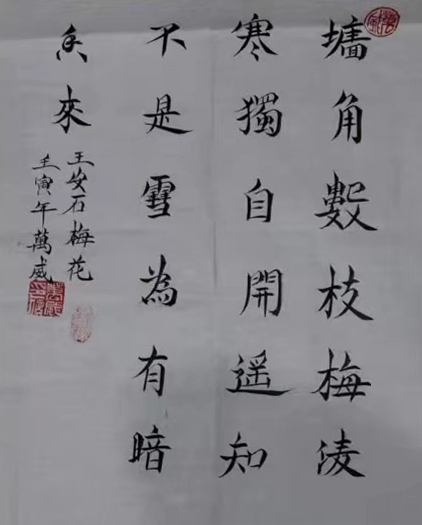 墻角數枝梅凌
寒獨自開遥知
不是雪為有暗
香來
王安石梅花
壬寅年萬威